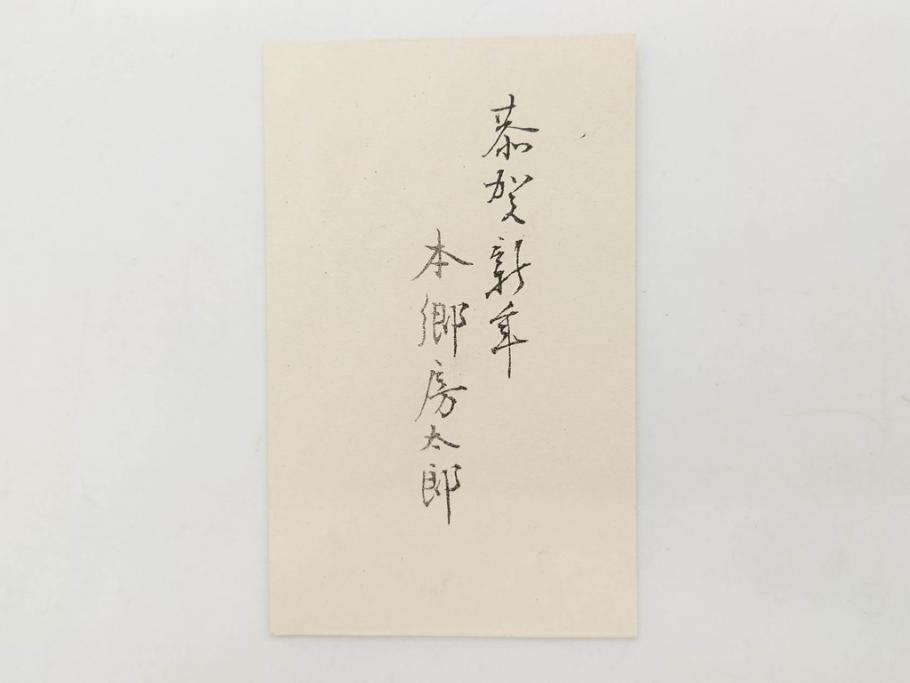 恭賀新年
本郷房太郎